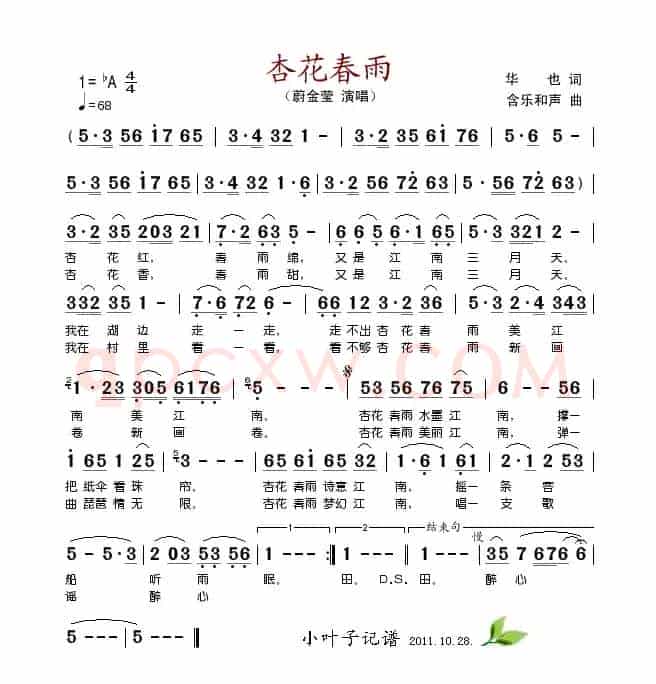 杏花春雨
1=♭A 4/4
♩=68
（蔚金莹 演唱）
华 也 词
含乐和声 曲
( 5·3 56 i7 65 | 3·4 32 1 - | 3·2 35 61 76 | 5 - - - |
5·3 56 i7 65 | 3·4 32 1·6 | 3·2 56 72 63 | 5·56 72 63 ) |
3·2 35 203 21 | 7·2 63 5 - | 6 65 6·1 65 | 5·3 321 2 - |
杏 花 红， 春 雨 绵， 又是 江 南 三 月 天，
杏 花 香， 春 雨 甜， 又是 江 南 三 月 天，
332 35 1 - | 7·6 72 6 - | 66 12 3·2 36 | 5 2·4 343 |
我在 湖 边 走 一 走， 走 不出 杏 花 春 雨 美 江
我在 村 里 看 一 看， 看 不够 杏 花 春 雨 新 画
1·23 305 6176 | 5 - | 53 56 76 75 | 6 - - 56 |
南 美 江 南。 杏花 春雨 水墨 江 南， 撑一
卷 新 画 卷。 杏花 春雨 美丽 江 南， 弹一
i 65 1 25 | 3 - - - | 63 65 65 32 | 1·6 1 61 | 2·1 2 53 |
把 纸伞 看 珠 帘， 杏花 春雨 诗意 江 南， 摇一 条 客
曲 琵琶 情 无 限， 杏花 春雨 梦幻 江 南， 唱一 支 歌
5 - 5·3 | 2 03 53 56 | 1 - - - :| 1 - - - | 1 - - - | 35 7 676 6 |
1
2
结束句
慢
船 听 雨 眠， 田， D.S. 田， 醉 心
谣 醉 心
5 - - - | 5 - - - ‖
田。
小叶子记谱 2011.10.28.
qpcxw.COM